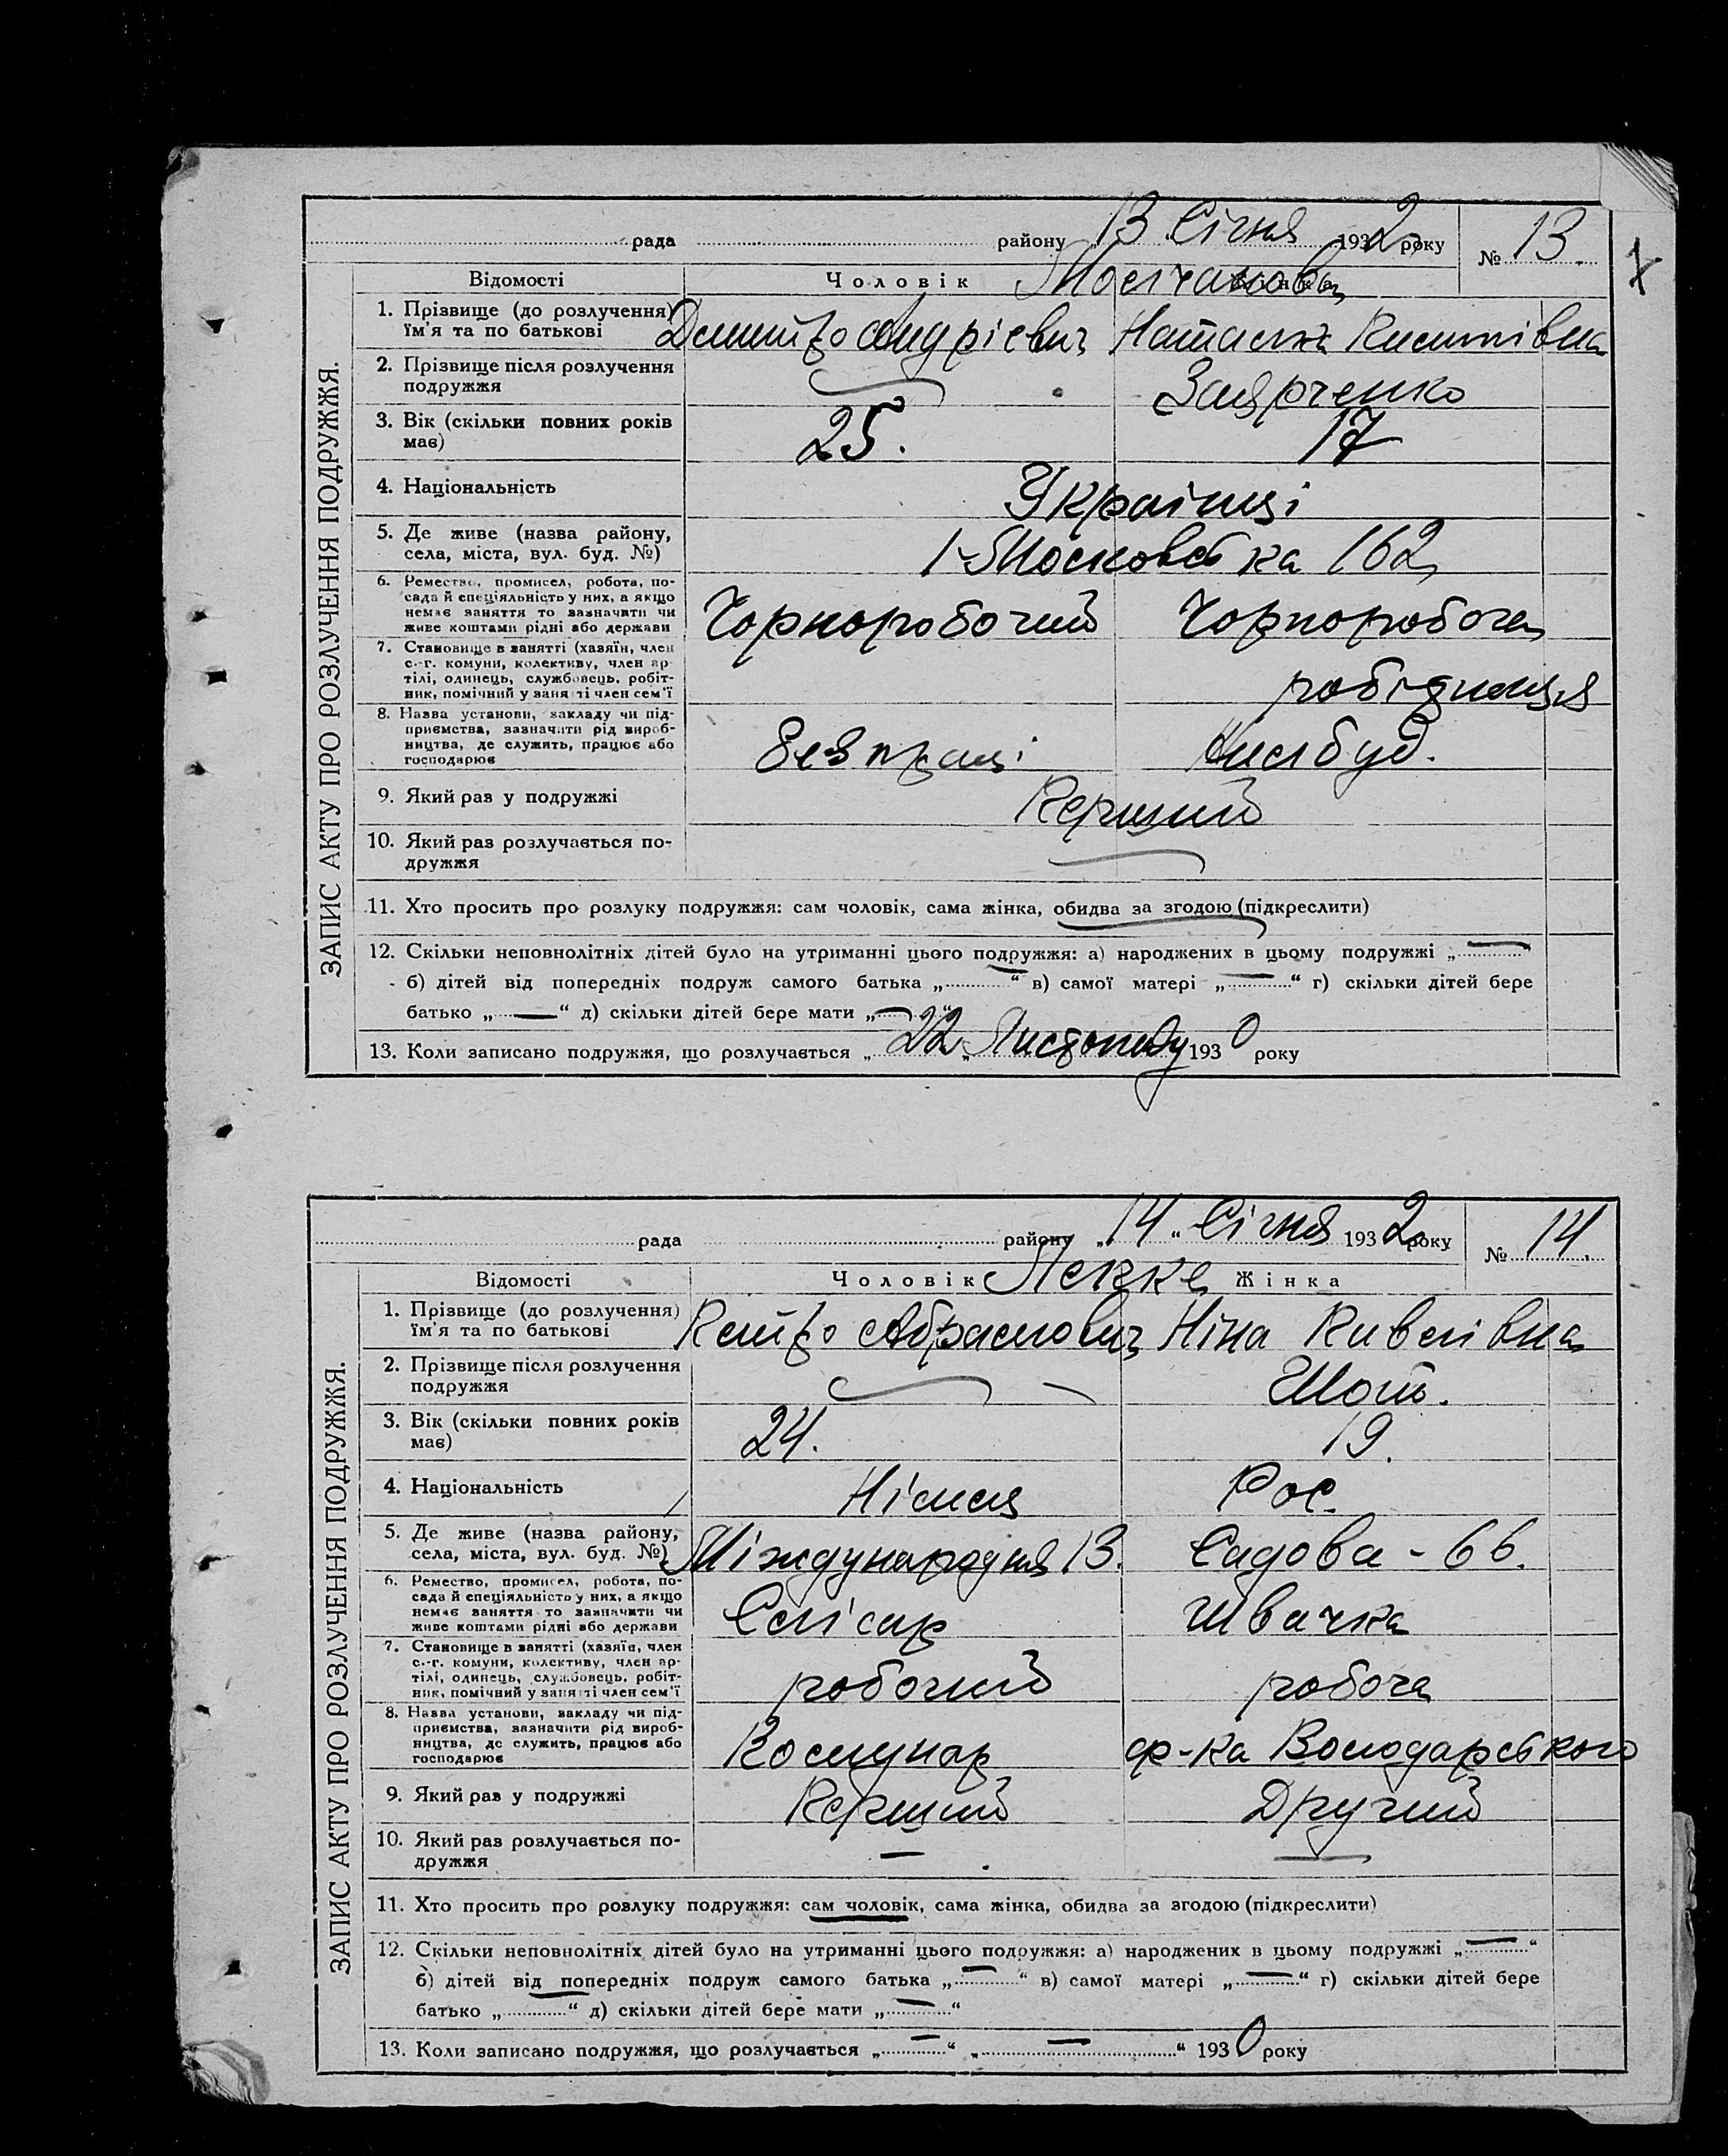 ЗАПИС АКТУ ПРО РОЗЛУЧЕННЯ ПОДРУЖЖЯ.
рада району „13 Січня 1932 року № 13.
Відомості Чоловік Молчанова
1. Прізвище (до розлучення) ім'я та по батькові Дмитро Андрієвич Наталка
2. Прізвище після розлучення подружжя
3. Вік (скільки повних років має) 25. 17
4. Національність Українці
5. Де живе (назва району, села, міста, вул. буд. №) 1-Московська 162
6. Ремество, промисел, робота, по-
сада й спеціяльність у них, а якщо
немає заняття то зазначити чи
живе коштами рідні або держави Чорноробочий Чорноробоча
7. Становище в занятті (хазяїн, член
с.-г. комуни, колективу, член ар-
тілі, одинець, службовець, робіт-
ник, помічний у занятті член сем'ї робітниця
8. Назва установи, закладу чи під-
приємства, зазначити рід вироб-
ництва, де служить, працює або
господарює Без праці
9. Який раз у подружжі Перший
10. Який раз розлучається по-
дружжя
11. Хто просить про розлуку подружжя: сам чоловік, сама жінка, обидва за згодою (підкреслити)
12. Скільки неповнолітніх дітей було на утриманні цього подружжя: а) народжених в цьому подружжі „—“
б) дітей від попередніх подруж самого батька „—“ в) самої матері „—“ г) скільки дітей бере
батько „—“ д) скільки дітей бере мати „—“
13. Коли записано подружжя, що розлучається „22„ Листопаду 1930 року
ЗАПИС АКТУ ПРО РОЗЛУЧЕННЯ ПОДРУЖЖЯ.
рада району „14“ Січня 1932 року № 14.
Відомості Чоловік Жінка
1. Прізвище (до розлучення) ім'я та по батькові Петро Абрамович Ніна
2. Прізвище після розлучення подружжя Шот.
3. Вік (скільки повних років має) 24. 19.
4. Національність Німця Рос.
5. Де живе (назва району, села, міста, вул. буд. №) Міждународня 13. Садова - 66.
6. Ремество, промисел, робота, по-
сада й спеціяльність у них, а якщо
немає заняття то зазначити чи
живе коштами рідні або держави Слісар Швачка
7. Становище в занятті (хазяїн, член
с.-г. комуни, колективу, член ар-
тілі, одинець, службовець, робіт-
ник, помічний у занятті член сем'ї робочий робоча
8. Назва установи, закладу чи під-
приємства, зазначити рід вироб-
ництва, де служить, працює або
господарює Комунар ф-ка Володарського
9. Який раз у подружжі Перший Другий
10. Який раз розлучається по-
дружжя — —
11. Хто просить про розлуку подружжя: сам чоловік, сама жінка, обидва за згодою (підкреслити)
12. Скільки неповнолітніх дітей було на утриманні цього подружжя: а) народжених в цьому подружжі „—“
б) дітей від попередніх подруж самого батька „—“ в) самої матері „—“ г) скільки дітей бере
батько „—“ д) скільки дітей бере мати „—“
13. Коли записано подружжя, що розлучається „—“ „—“ 1930 року